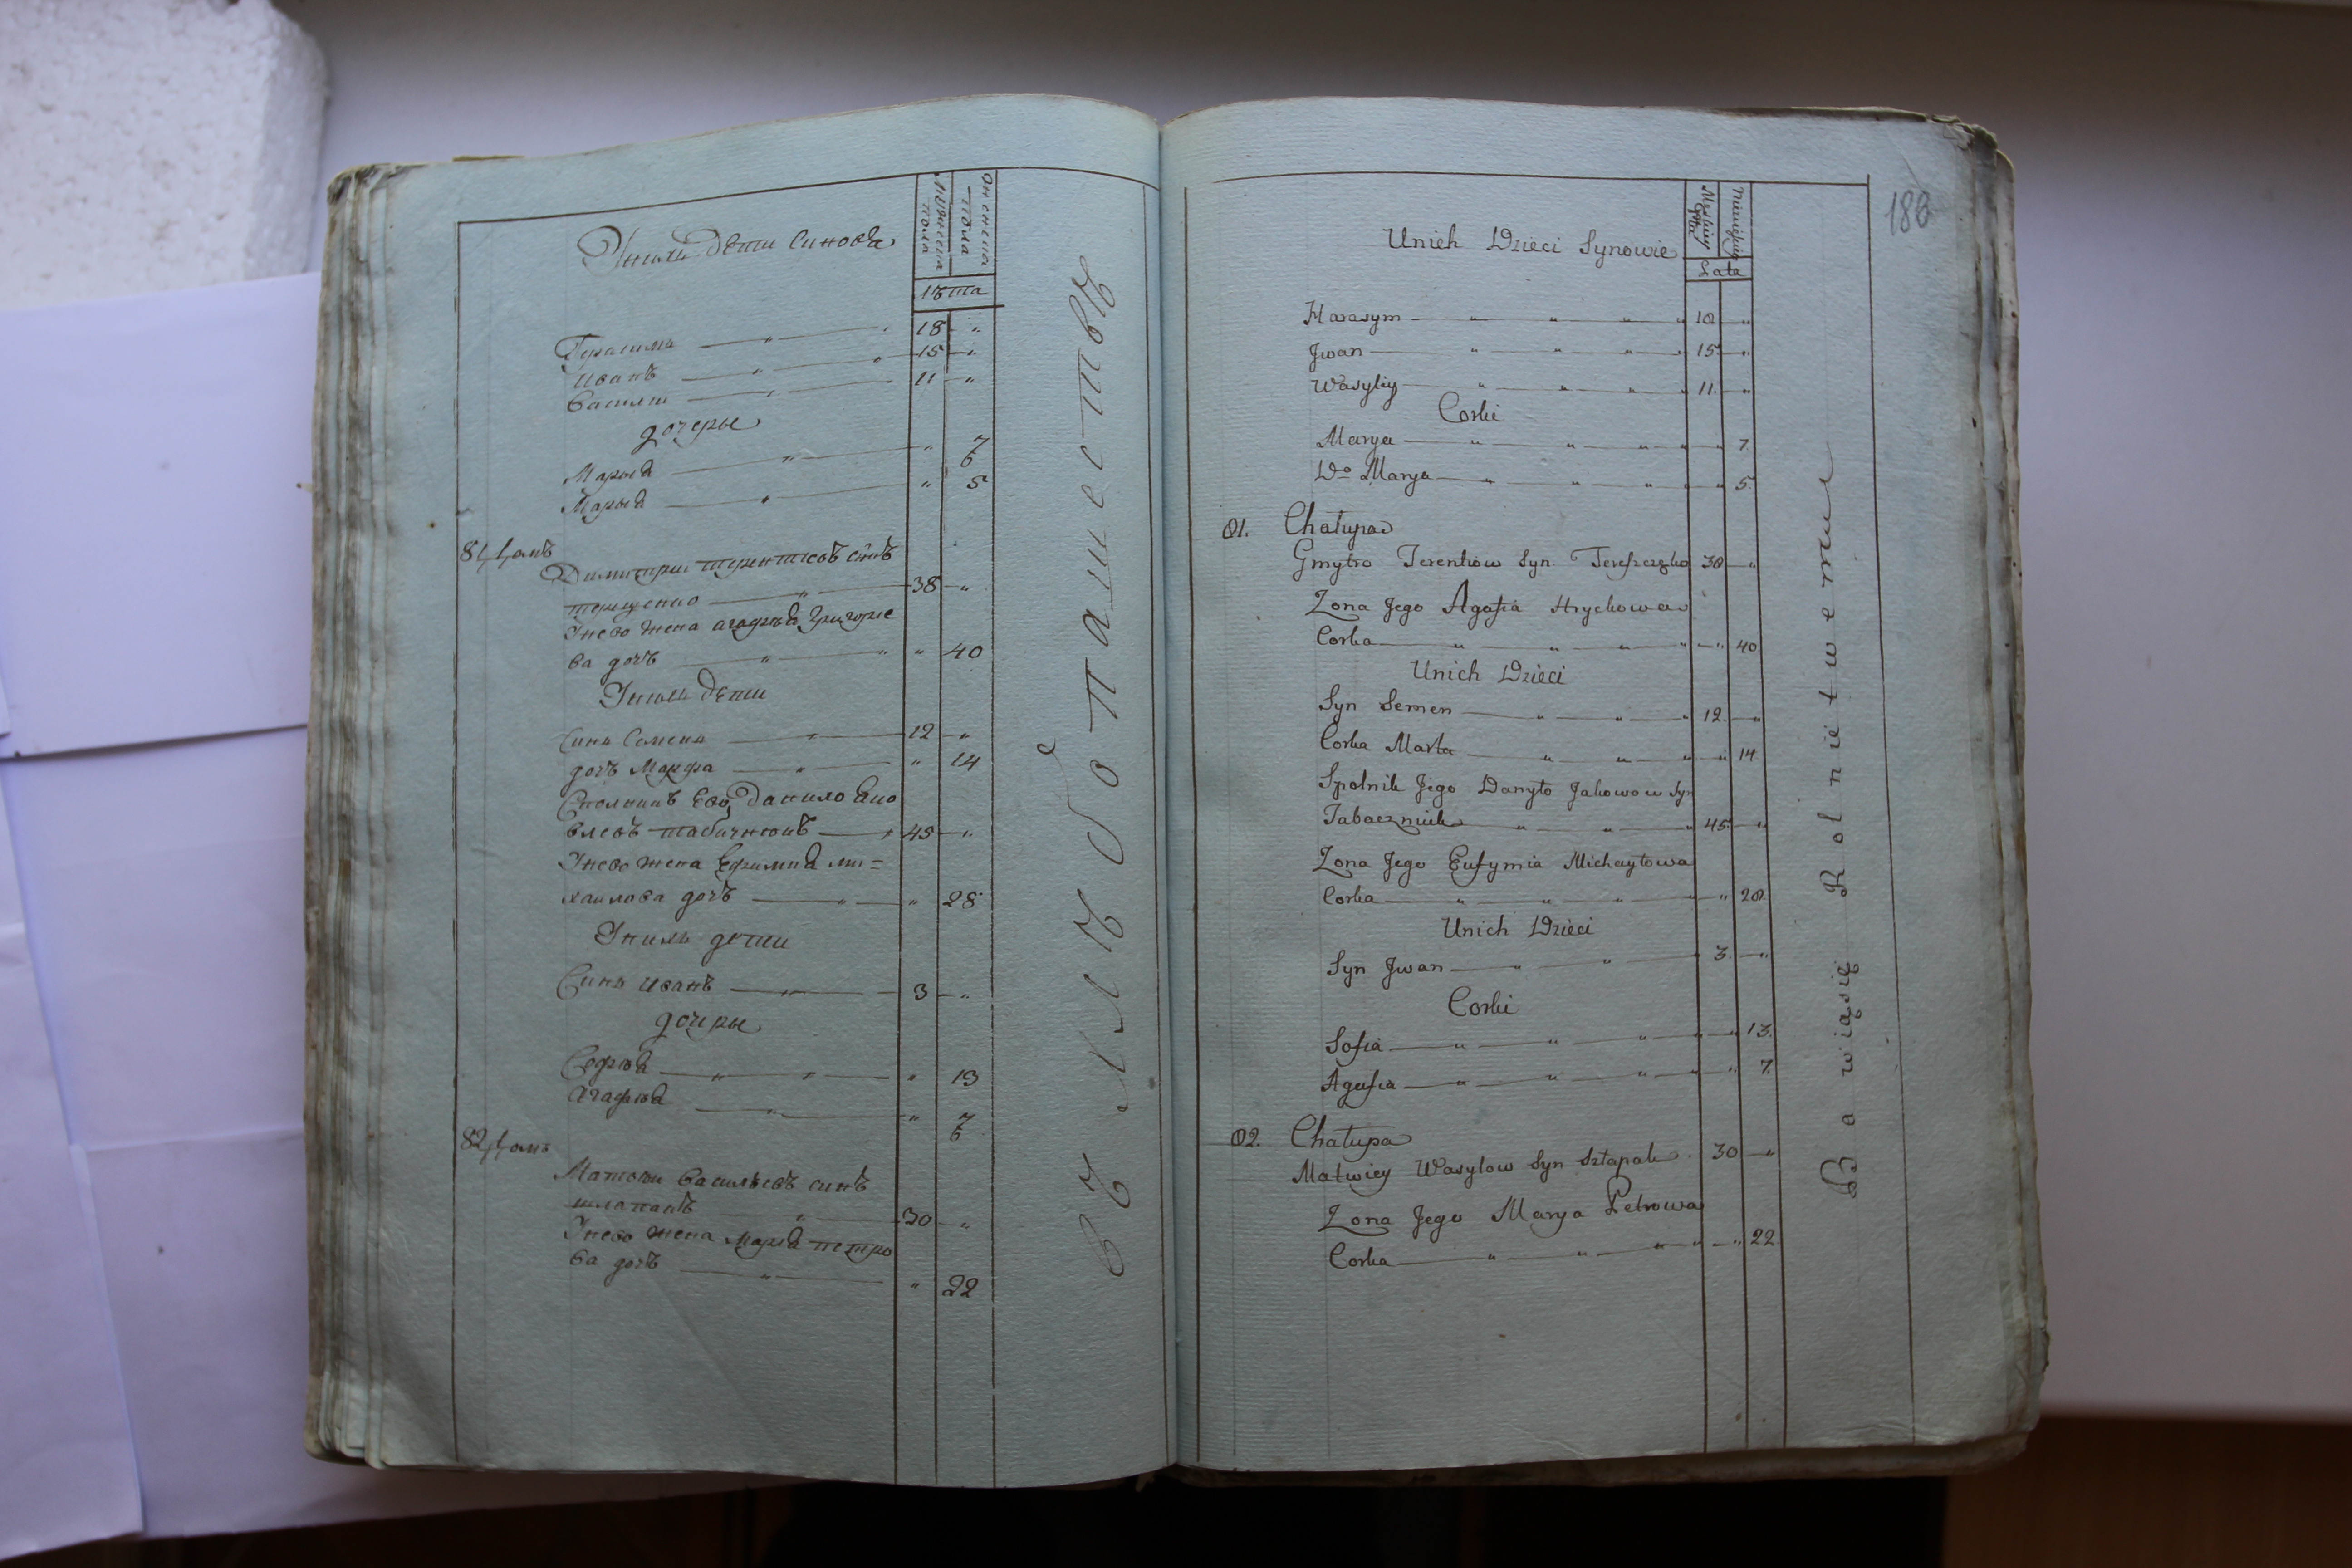 Унихъ Дѣти Синовя
мужеска пола
женска пола
лѣта
Герасимъ 18 "
Иванъ 15 "
Василій 11 "
дочеры
Марья " 7
Марья " 5
81
Димитрій терентіевъ синъ
терещенко 38 "
Унево жена агафія Григорье
ва дочъ " 40
Унихъ Дѣти
Синъ Семенъ 12 "
дочъ Марфа " 14
Сполникъ Его Данило Яко
влевъ табачнюкъ 45 "
Унево жена Ефимия ми=
хаилова дочъ " 28
Унихъ дети
Синъ Иванъ 3 "
дочеры
Софія " 13
Агафія " 7
82
Матвѣи Васильевъ синъ
шлапакъ 30 "
Унево жена Марія петро
ва дочъ " 22
въ хлѣбопашествѣ
186
Unich Dzieci Synowie
Lata
Harasym 18 "
Jwan 15 "
Wasyliy 11 "
Corki
Marya " 7
Do Marya " 5
81. Chałupa
Gmytro Terentiow Syn Tereszczęko 38 "
Zona Jego Agafia Hryckowa
Corka " 40
Unich Dzieci
Syn Semen 12 "
Corka Marta " 14
Spolnik Jego Danyło Jakowow Syn
Tabaczniuk 45 "
Zona Jego Eufymia Michayłowa
Corka " 28
Unich Dzieci
Syn Jwan 3 "
Corki
Sofia " 13
Agafia " 7
82. Chałupa
Matwiey Wasylow Syn Szłapak 30 "
Zona Jego Marya Petrowa
Corka " 22
Bawiąsię Rolnictwem